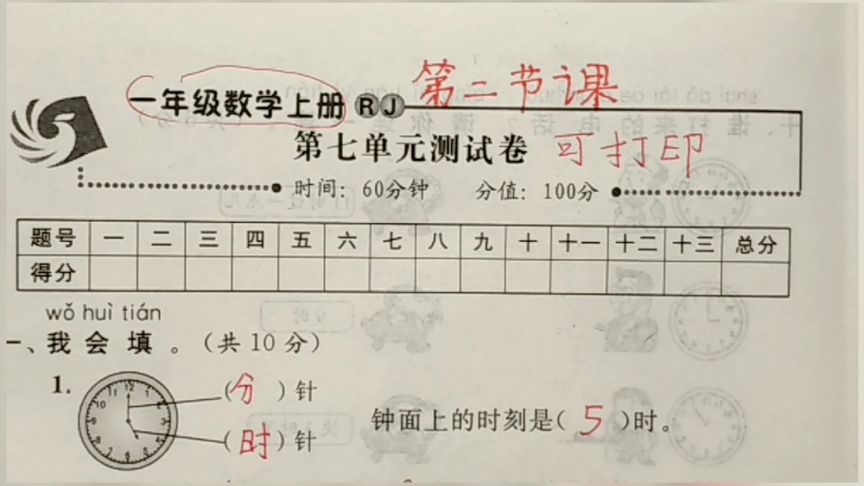 一年级数学上册 RJ 第二节课
第七单元测试卷 可打印
时间：60分钟 分值：100分
题号 一 二 三 四 五 六 七 八 九 十 十一 十二 十三 总分
得分
wǒ huì tián
一、我会填。（共10分）
1. （分）针
（时）针
钟面上的时刻是（5）时。